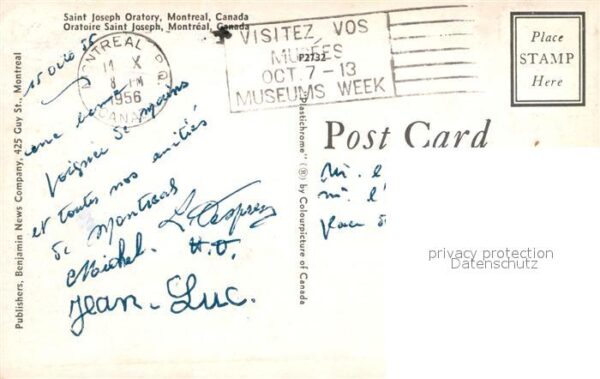 Saint Joseph Oratory, Montreal, Canada
Oratoire Saint Joseph, Montréal, Canada
MONTREAL P.Q.
X
8 PM
1956
CANADA
VISITEZ VOS
MUSÉES
OCT. 7 - 13
MUSEUMS WEEK
P2732
Place
STAMP
Here
Post Card
Publishers, Benjamin News Company, 425 Guy St., Montreal
"Plastichrome" (®) by Colourpicture of Canada
une bonne
Poignée de mains
et toutes nos amitiés
de Montréal
Michel
Jean-Luc.
privacy protection
Datenschutz